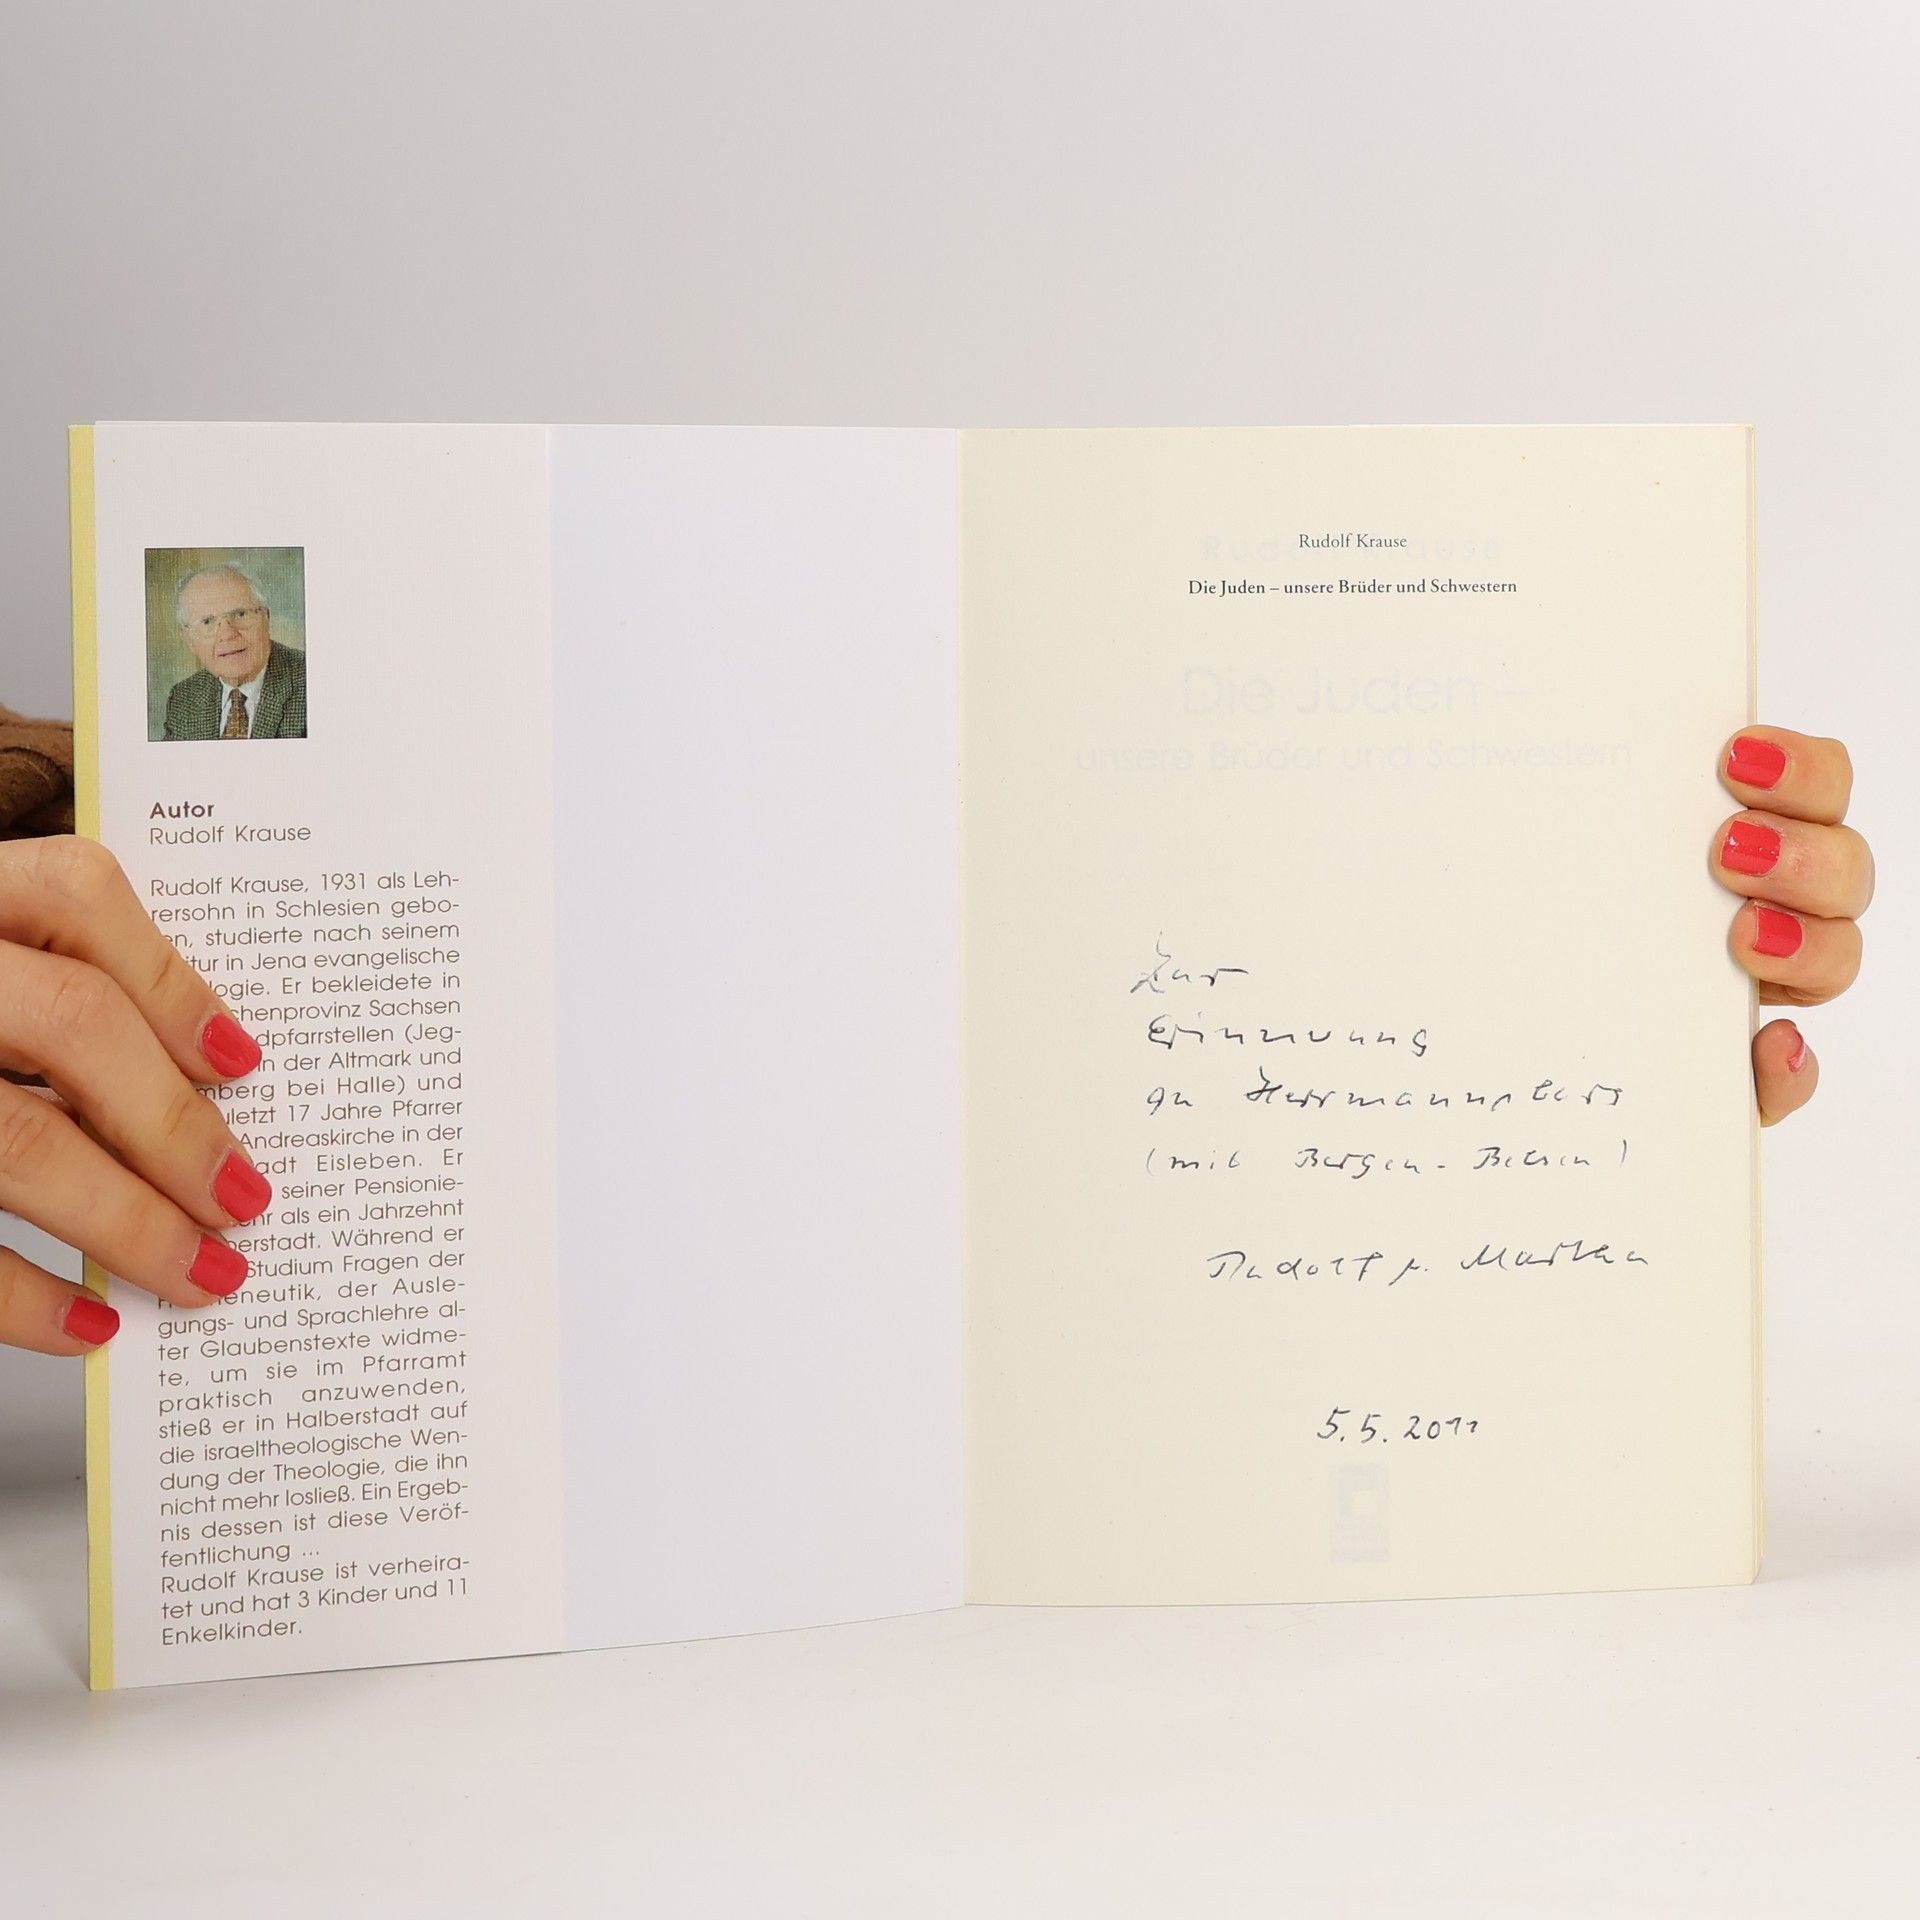 Autor
Rudolf Krause
Rudolf Krause, 1931 als Leh-
rersohn in Schlesien gebo-
en, studierte nach seinem
itur in Jena evangelische
logie. Er bekleidete in
chenprovinz Sachsen
dpfarrstellen (Jeg-
in der Altmark und
mberg bei Halle) und
uletzt 17 Jahre Pfarrer
Andreaskirche in der
adt Eisleben. Er
seiner Pensionie-
hr als ein Jahrzehnt
berstadt. Während er
Studium Fragen der
eneutik, der Ausle-
gungs- und Sprachlehre al-
ter Glaubenstexte widme-
te, um sie im Pfarramt
praktisch anzuwenden,
stieß er in Halberstadt auf
die israeltheologische Wen-
dung der Theologie, die ihn
nicht mehr losließ. Ein Ergeb-
nis dessen ist diese Veröf-
fentlichung ...
Rudolf Krause ist verheira-
tet und hat 3 Kinder und 11
Enkelkinder.
Rudolf Krause
Die Juden – unsere Brüder und Schwestern
Die Juden –
unsere Brüder und Schwestern
Zur
Erinnerung
an
(mit Bergen-Belsen)
Rudolf u. Martha
5.5.2011